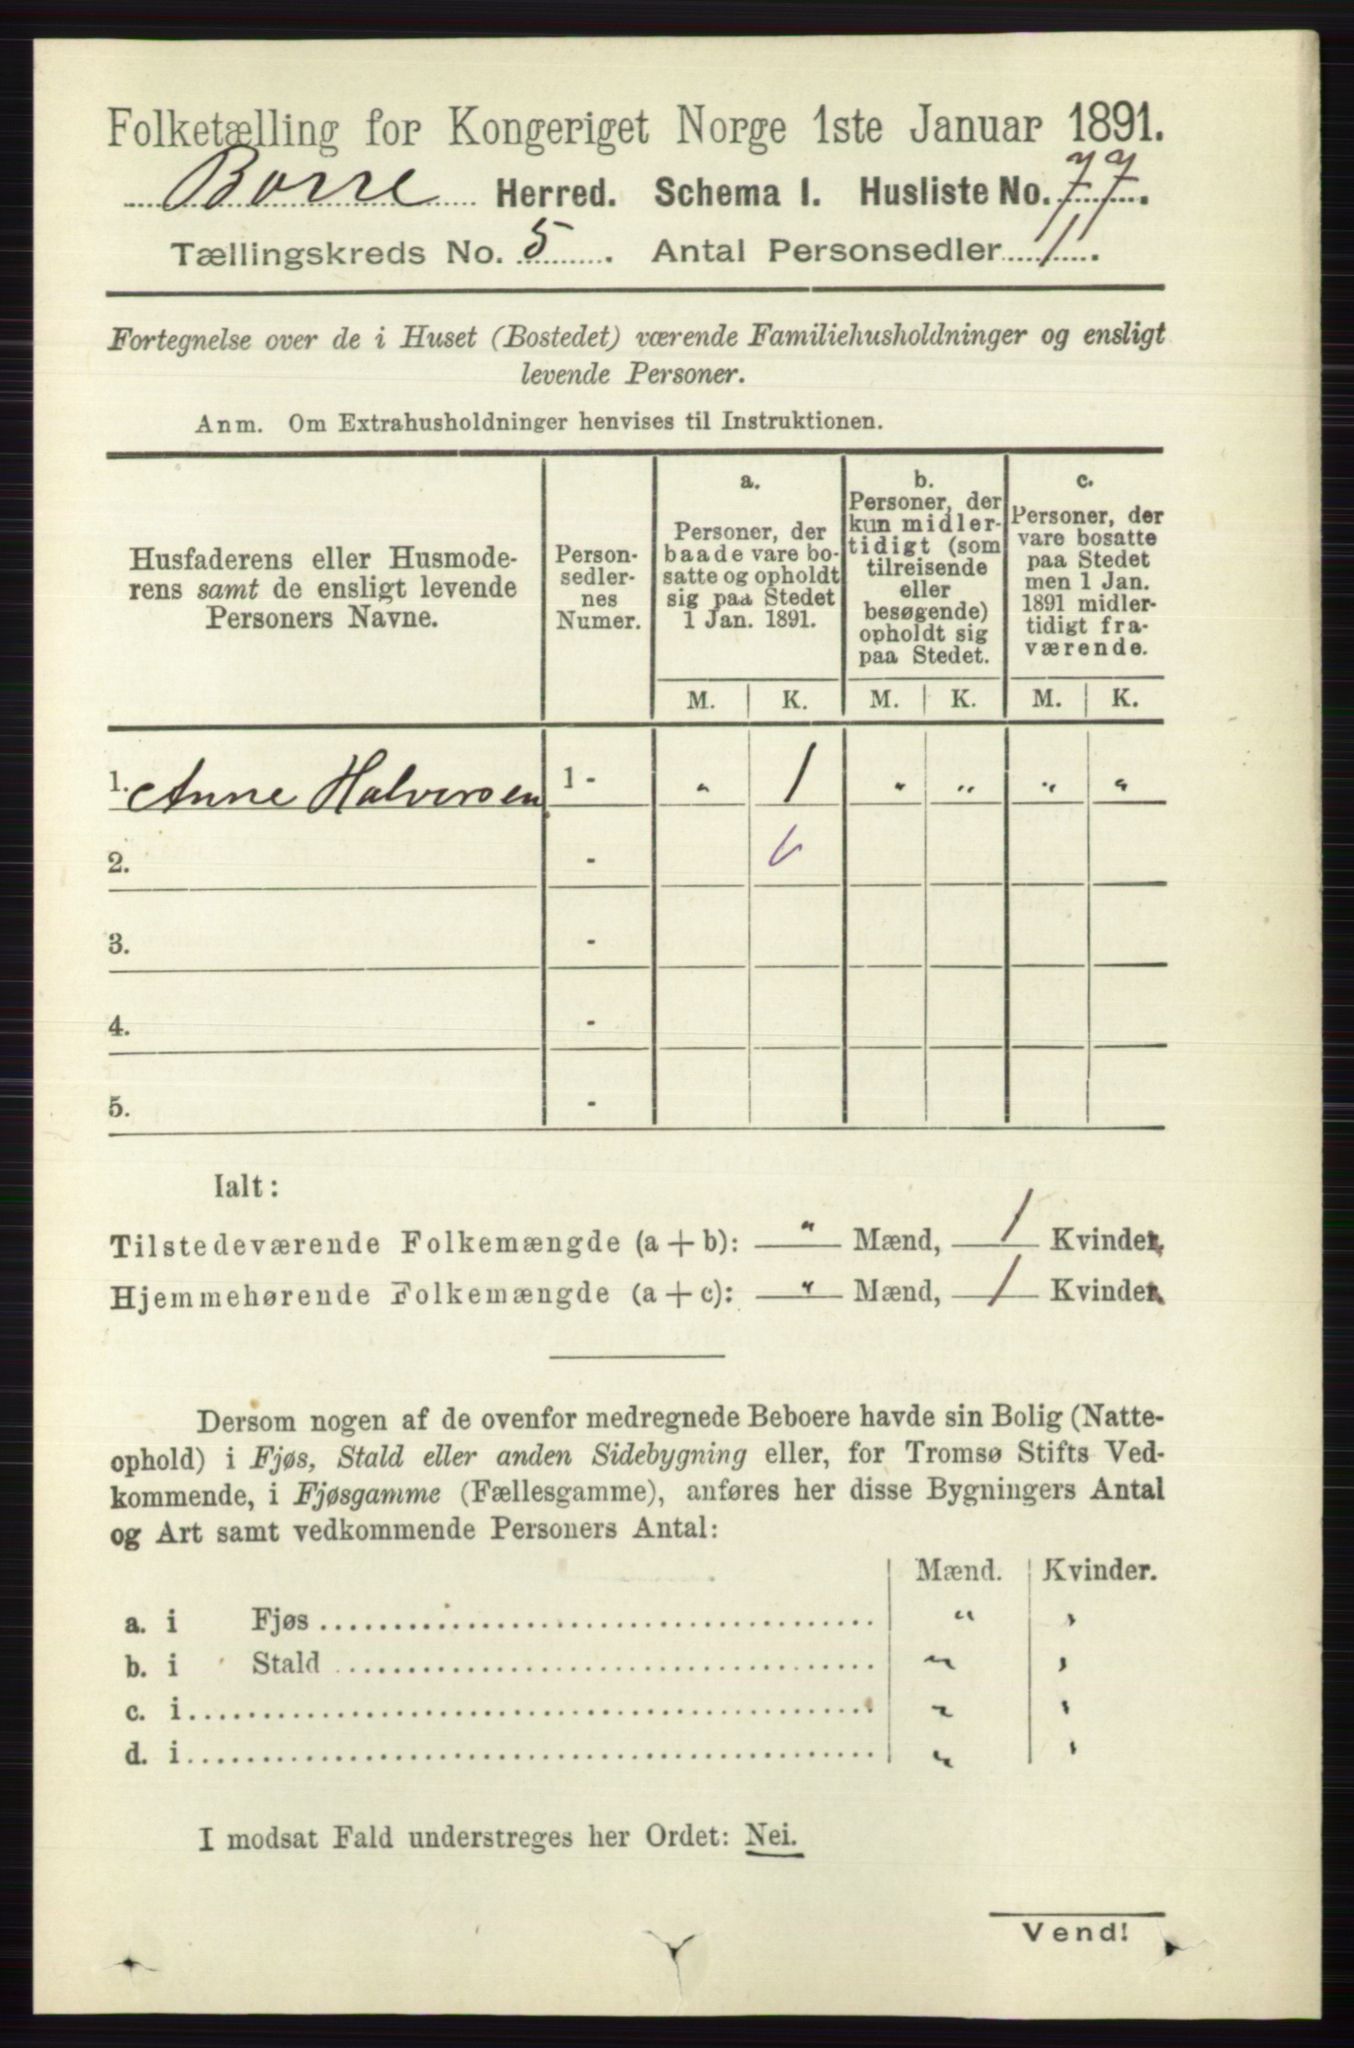 Folketælling for Kongeriget Norge 1ste Januar 1891.
Borre Herred. Schema I. Husliste No. 77.
Tællingskreds No. 5. Antal Personsedler 1.
Fortegnelse over de i Huset (Bostedet) værende Familiehusholdninger og ensligt
levende Personer.
Anm. Om Extrahusholdninger henvises til Instruktionen.
Husfaderens eller Husmode-
rens samt de ensligt levende
Personers Navne.
Person-
sedler-
nes
Numer.
a.
Personer, der
baade vare bo-
satte og opholdt
sig paa Stedet
1 Jan. 1891.
b.
Personer, der
kun midler-
tidigt (som
tilreisende
eller
besøgende)
opholdt sig
paa Stedet.
c.
Personer, der
vare bosatte
paa Stedet
men 1 Jan.
1891 midler-
tidigt fra-
værende.
M. K. M. K. M. K.
1. Anne Halvorsen 1 - " 1 " " " "
2. -
3. -
4. -
5. -
Ialt:
Tilstedeværende Folkemængde (a + b): " Mænd, 1 Kvinder,
Hjemmehørende Folkemængde (a + c): " Mænd, 1 Kvinder,
Dersom nogen af de ovenfor medregnede Beboere havde sin Bolig (Natte-
ophold) i Fjøs, Stald eller anden Sidebygning eller, for Tromsø Stifts Ved-
kommende, i Fjøsgamme (Fællesgamme), anføres her disse Bygningers Antal
og Art samt vedkommende Personers Antal:
Mænd. Kvinder.
a. i Fjøs " "
b. i Stald " "
c. i " "
d. i " "
I modsat Fald understreges her Ordet: Nei.
Vend!